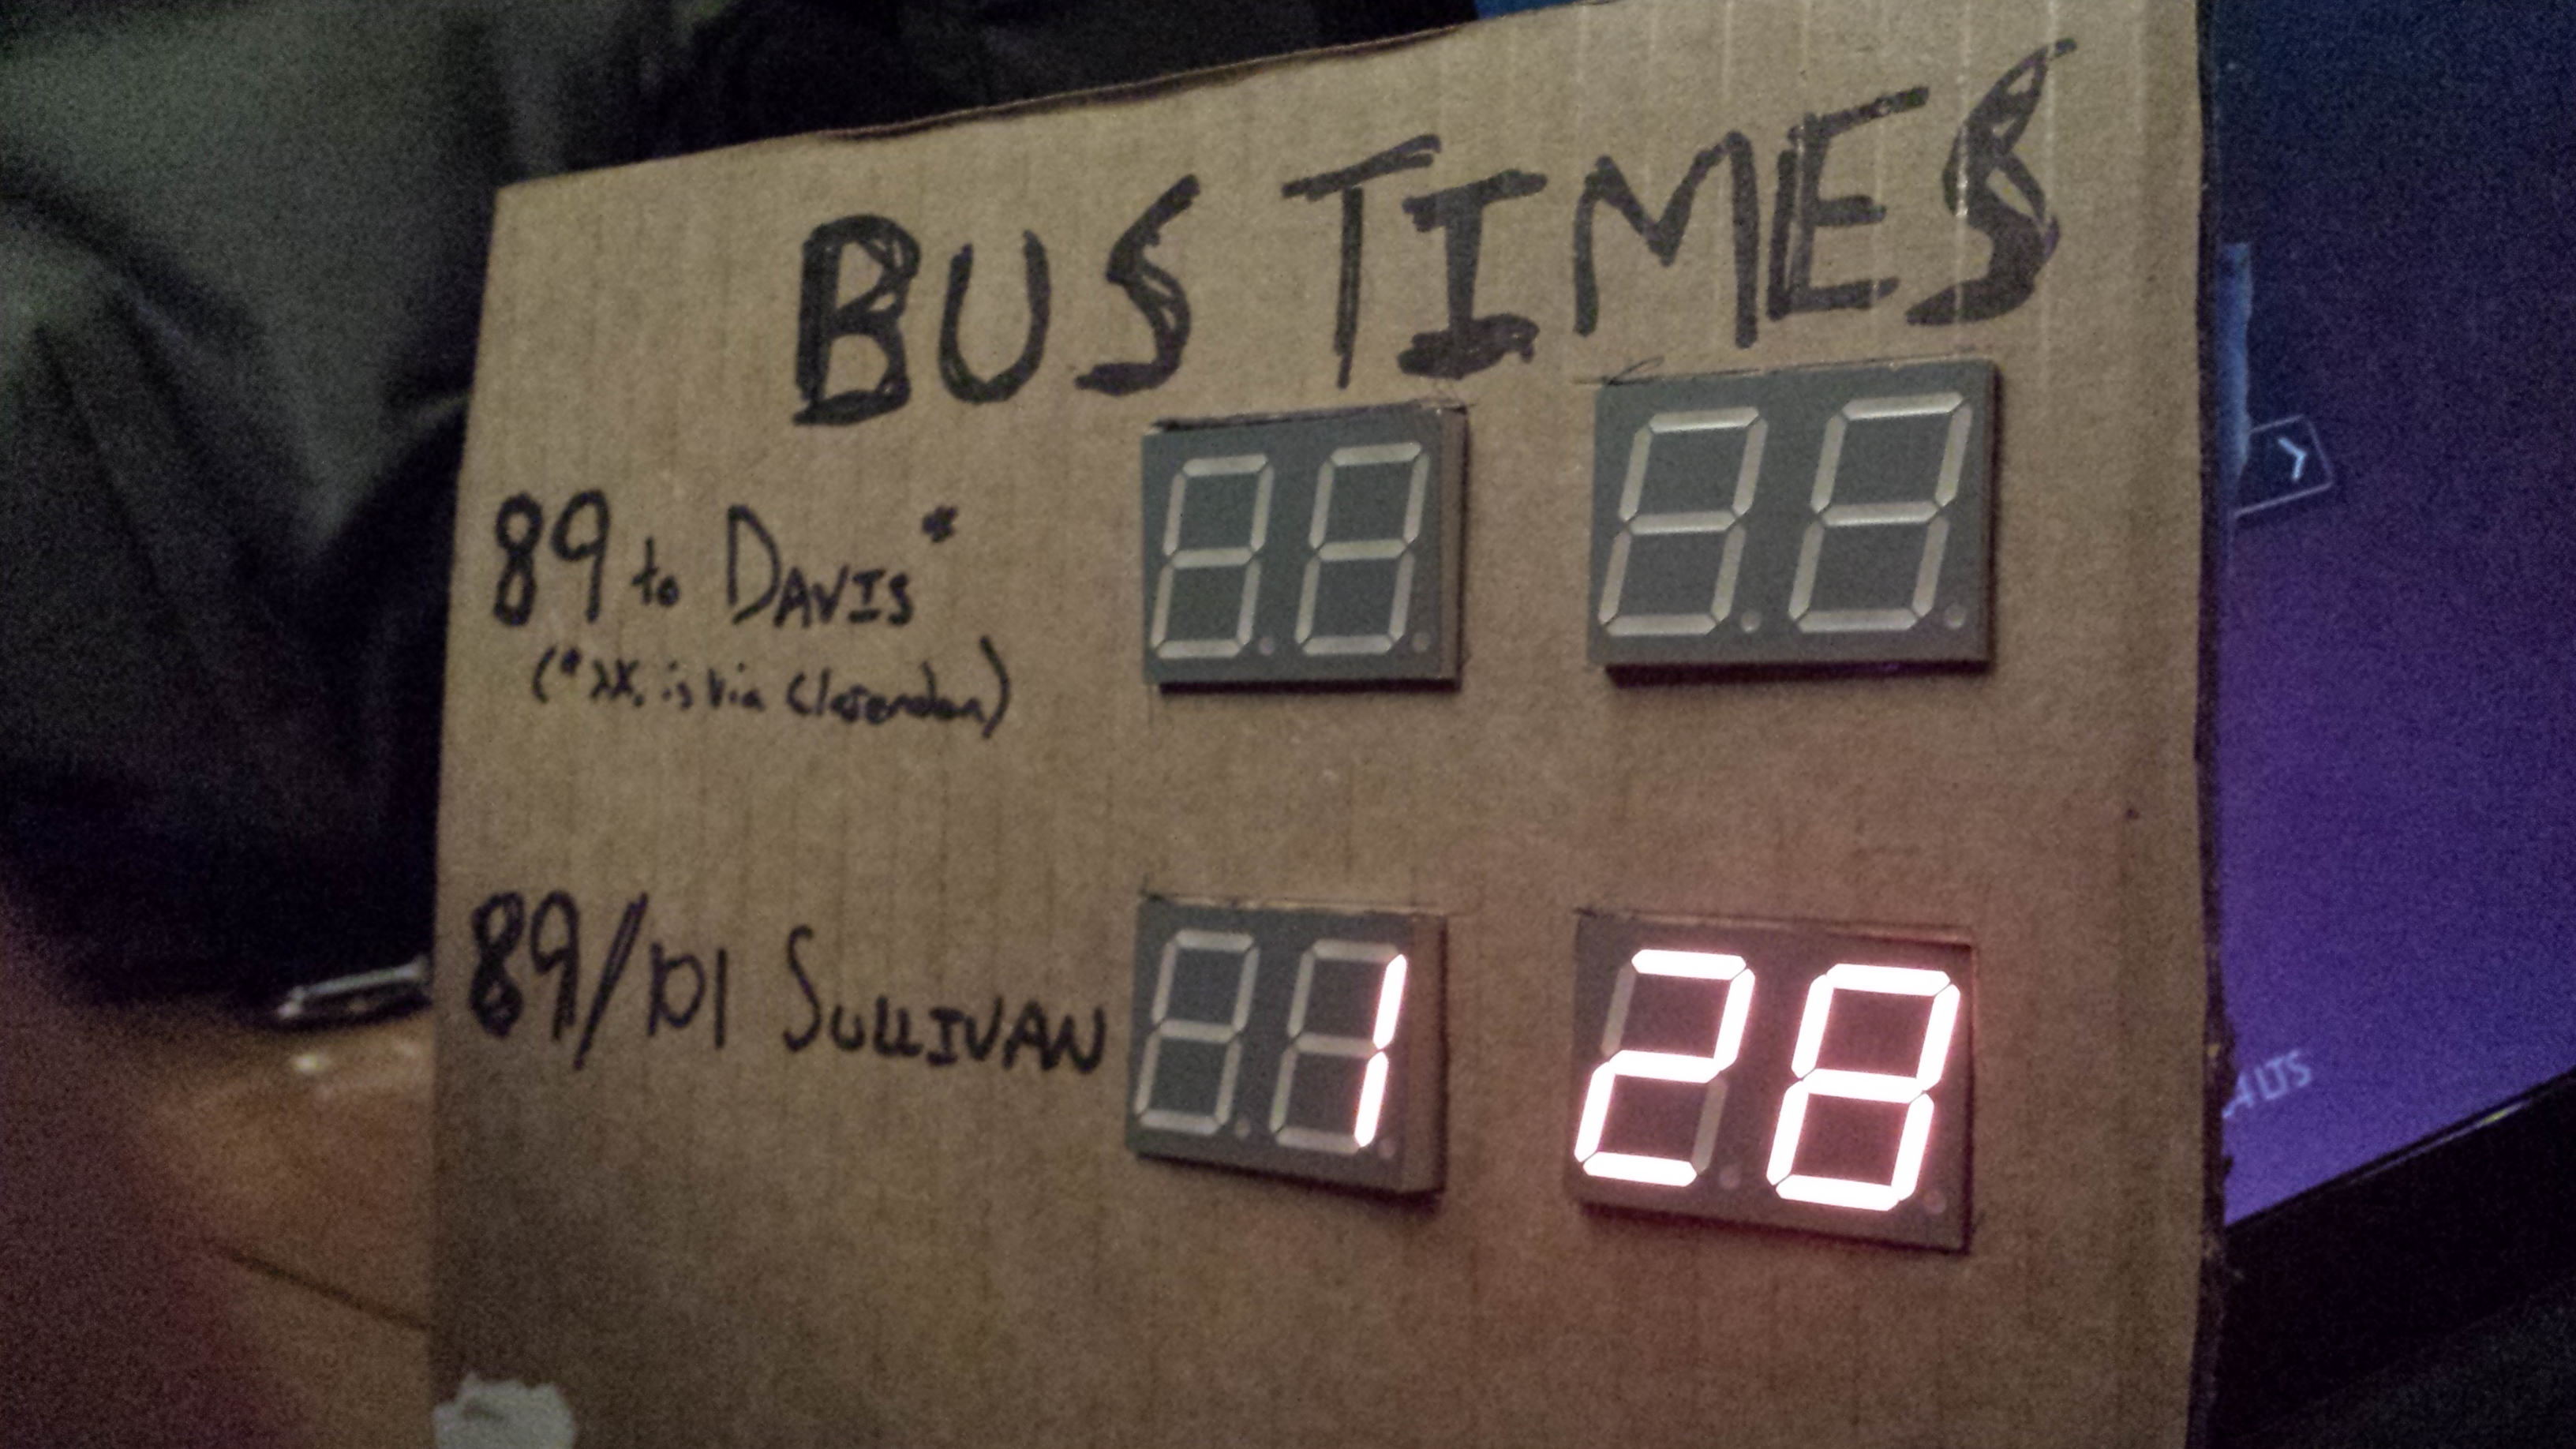 BUS TIMES
89 to DAVIS*
(* XX. is via Clarendon)
89/101 SULLIVAN
1 28